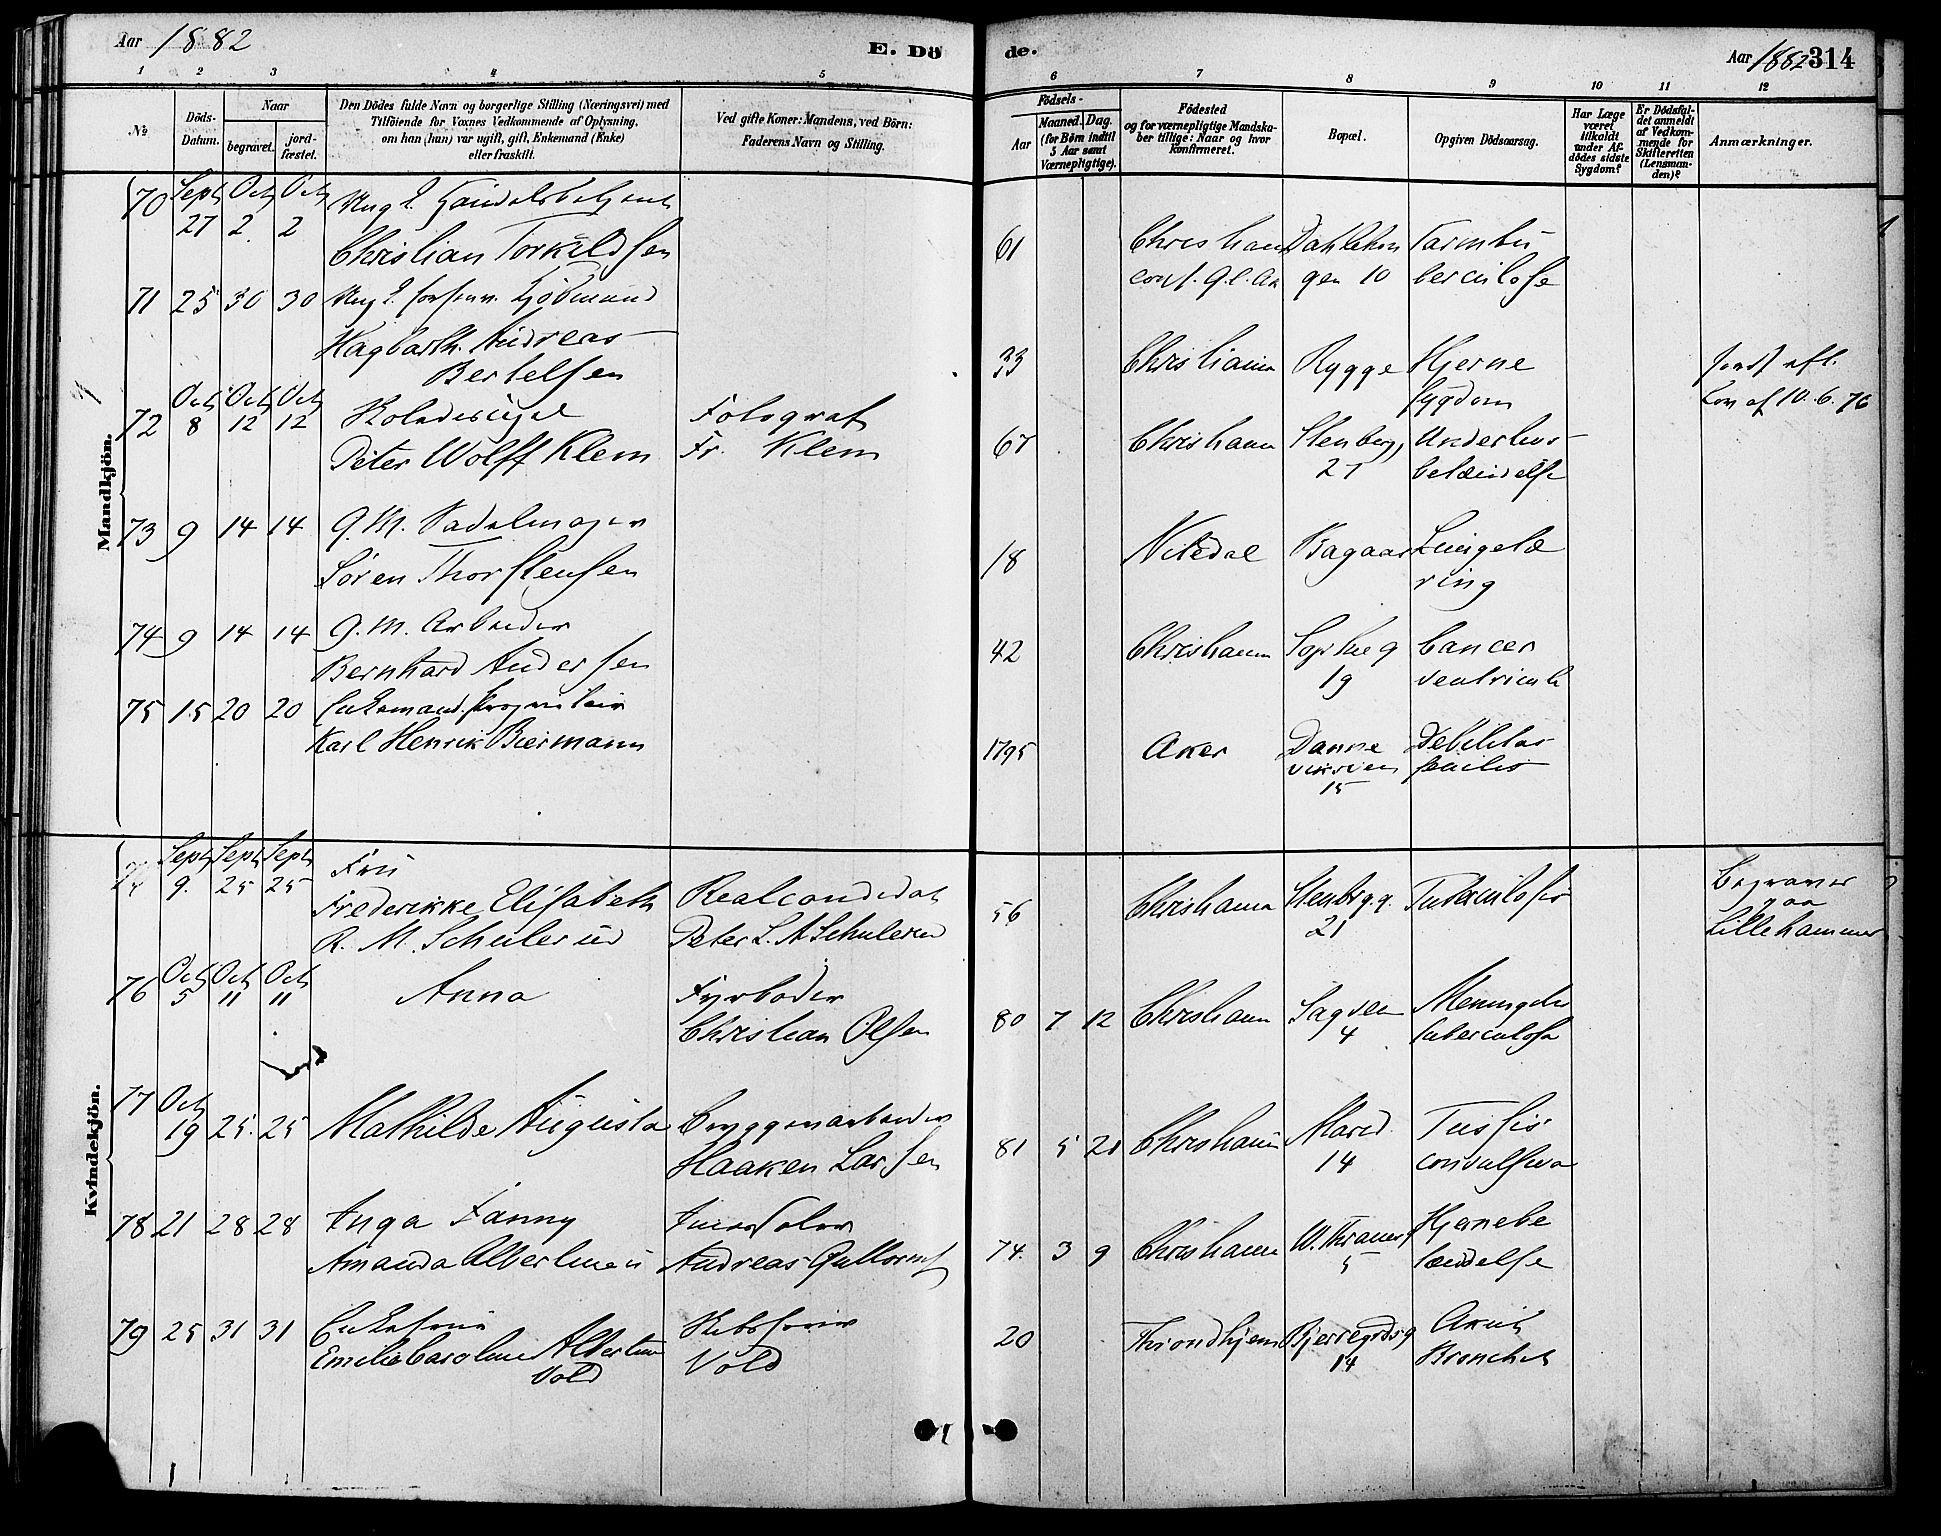 Aar 1882
E. Dö
de.
Aar 1882
314
1 2 3 4 5 6 7 8 9 10 11 12
№
Döds-Datum.
Naar
begravet.
jord-fæstet.
Den Dödes fulde Navn og borgerlige Stilling (Næringsvei) med
Tilföiende for Voxnes Vedkommende af Oplysning,
om han (hun) var ugift, gift, Enkemand (Enke)
eller fraskilt.
Ved gifte Koner: Mandens, ved Börn:
Faderens Navn og Stilling.
Födsels-
Aar
Maaned.
Dag.
(for Börn indtil
5 Aar samt
Værnepligtige).
Födested
og for værnepligtige Mandska-
ber tillige: Naar og hvor
konfirmeret.
Bopæl.
Opgiven Dödsaarsag.
Har Læge
været
tilkaldt
under Af-
dödes sidste
Sygdom?
Er Dödsfal-
det anmeldt
af Vedkom-
mende for
Skifteretten
(Lensman-
den)?
Anmærkninger.
Mandkjön.
70 Sept Oct Oct Ung. Handelsbetjent
27 2 2
Christian Torkildsen 61 Christiania Dahleben Tarmtu
conf. Gl. Ak gen 10 berculose
71 25 30 30 Ung. Kjöbmand
Hagbarth Andreas
Bertelsen 33 Christiania Rygge Hjerne
sygdom
Lov af 10. 6. 76
Oct Oct Oct
72 8 12 12 Skoledisipel Fotograf
Peter Wolff Klem Fr. Klem 67 Christiania Stenberg 21 Underlivs
betændelse
73 9 14 14 G. M. Sadelmager
Sören Thorstensen 18 Nitedal Lungetæ
ring
74 9 14 14 G. M. Arbeider
Bernhard Andersen 42 Christiania Sophieg 19 Cancer
ventriculi
75 15 20 20 Enkemand. Proprietair
Karl Henrik Biermann 1795 Aker Danne
viksvei 15 Debilitas
senilis
Kvindekjön.
Sept Sept Sept
9. 25 25 Fru
Frederikke Elisabeth Realcandidat 56 Christiania Stenbg.g. 21 Tuberculosis Begraves
paa
Lillehammer
R. M. Schulerud Peter L. A Schulerud
Oct Oct Oct
76 5 11 11 Anna Fyrböder
Christian Olsen 80 7 12 Christiania Sagvei 4 Meningitis
tuberculosa
77 Oct
19 25. 25 Mathilde Augusta Bryggeriarbeider
Haaken Larsen 81 5 21 Christiania Marid. 14 Tussis
convulsiva
78 21 28 28 Inga Fanny
Amanda Albertine Andreas Guttorms 74. 3 9 Christiania W. Thranesg 5 Hjernebe
tændelse
79 25 31 31 Enkefrue Skibsförer
Emilie Caroline Albertine
Vold Vold 20 Throndhjem Bjerregrdsg 14 Akut
Bronchit